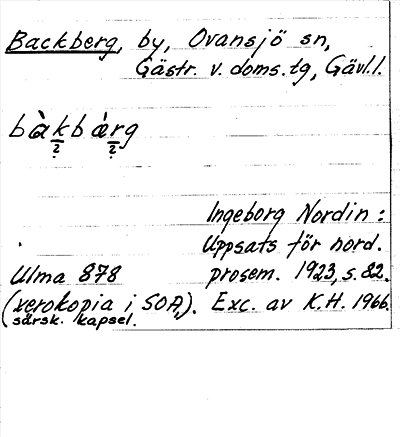 Backberg, by, Ovansjö sn,
Gästr. v. doms. tg, Gävl. l.
bàkbárg
? ?
Ingeborg Nordin:
Uppsats för nord.
Ulma 878 prosem. 1923, s. 82.
(xerokopia i SOA,). Exc. av K.H. 1966.
särsk. kapsel.